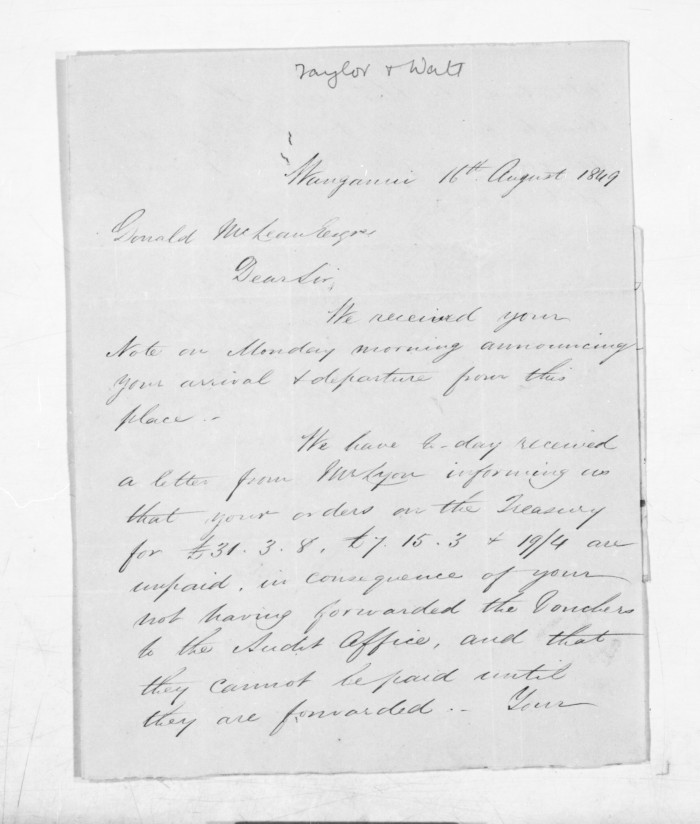 Taylor & Watt
Wanganui 16th August 1849
Donald McLean Esqre
Dear Sir,
We received your
Note on Monday morning announcing
your arrival & departure from this
place. -
We have to-day received
a letter from Mr Lyon informing us
that your orders on the Treasury
for £31. 3. 8, £7. 15. 3 & 19/4 are
unpaid, in consequence of your
not having forwarded the Vouchers
to the Audit Office, and that
they cannot be paid until
they are forwarded. - Your